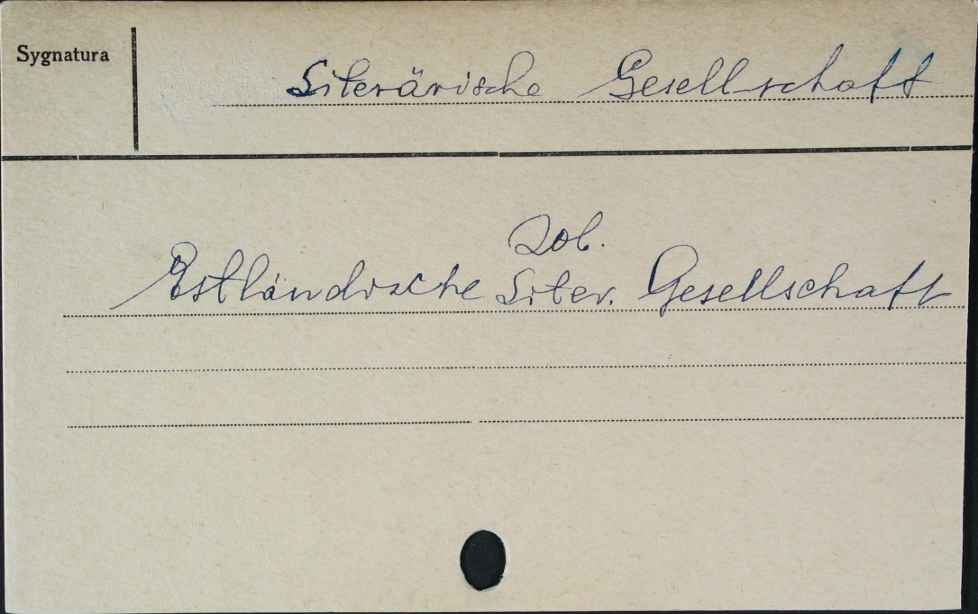 Sygnatura
Literärische Gesellschaft
Zob.
Estländische Liter. Gesellschaft